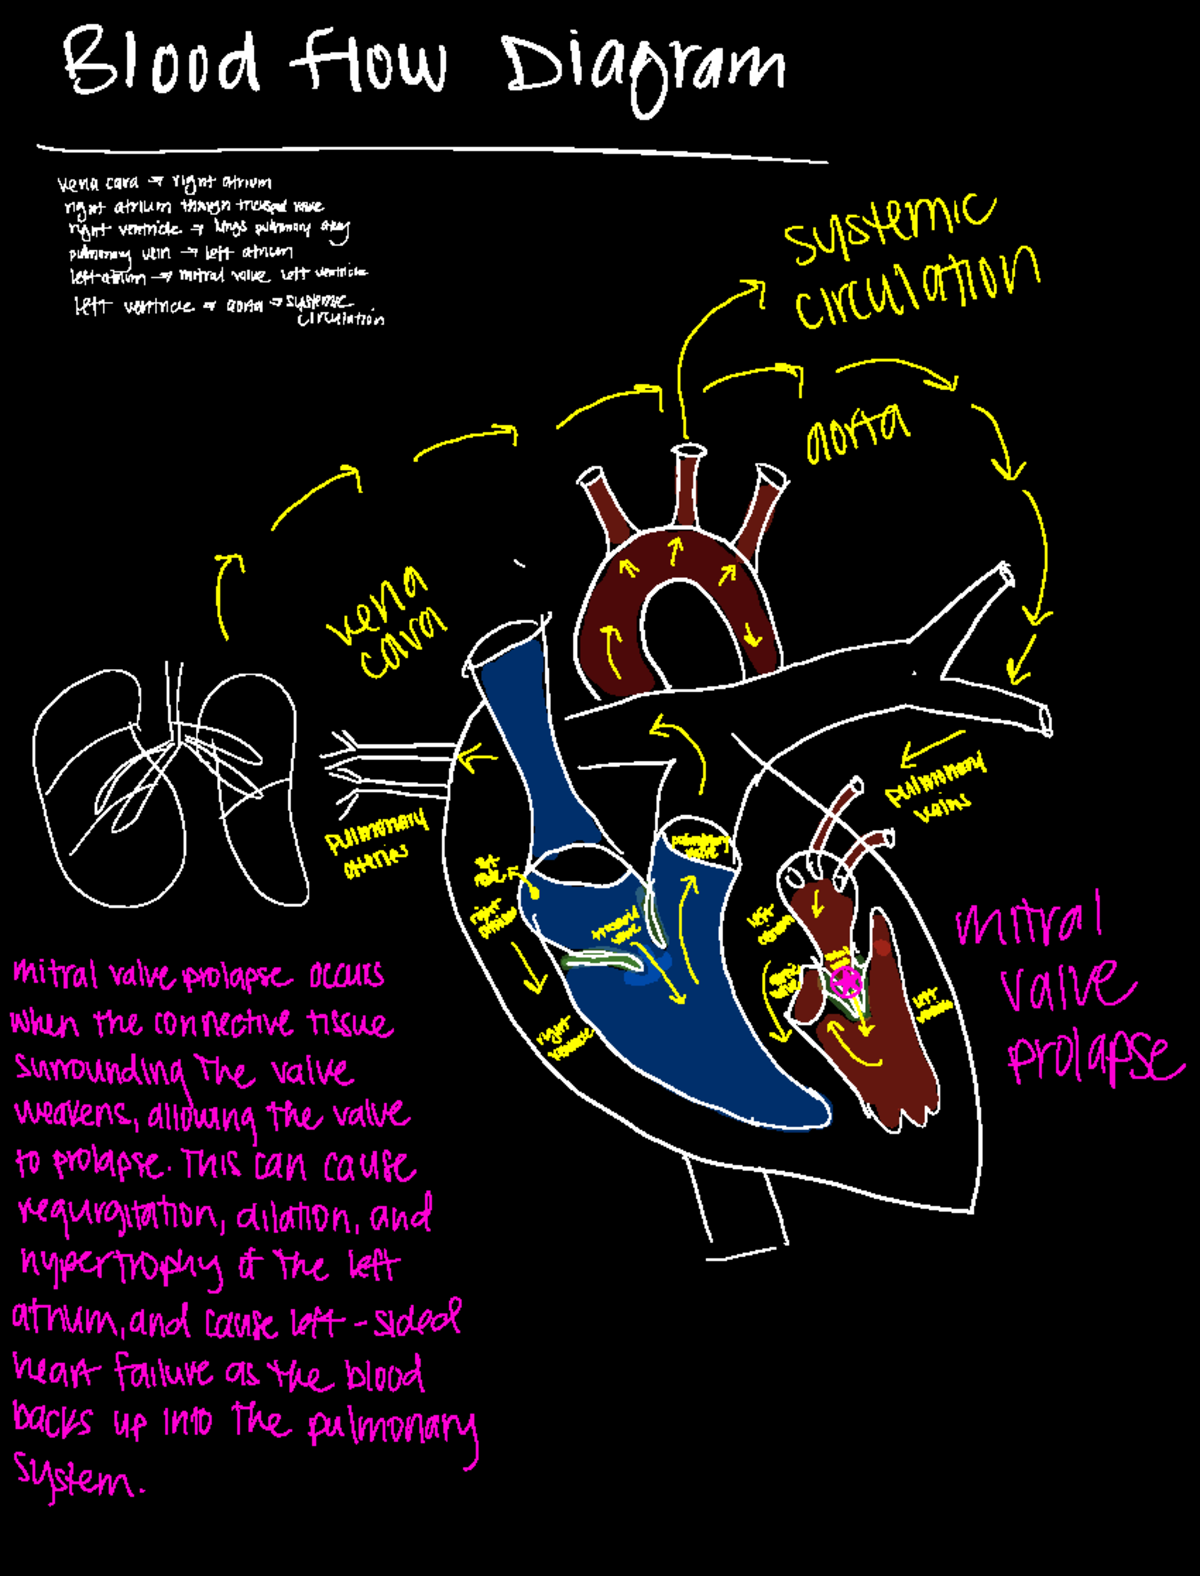 Blood flow Diagram
vena cava → right atrium
right atrium through tricuspid valve
right ventricle → lungs pulmonary artery
pulmonary vein → left atrium
left atrium → mitral valve left ventricle
left ventricle → aorta → systemic
circulation
systemic
circulation
aorta
vena
cava
pulmonary
arteries
pulmonary
veins
pulmonary
valve
right
atrium
tricuspid
valve
right
ventricle
left
atrium
valve
left
mitral
valve
prolapse
mitral valve prolapse occurs
when the connective tissue
surrounding the valve
weakens, allowing the valve
to prolapse. This can cause
regurgitation, dilation, and
hypertrophy of the left
atrium, and cause left-sided
heart failure as the blood
backs up into the pulmonary
system.